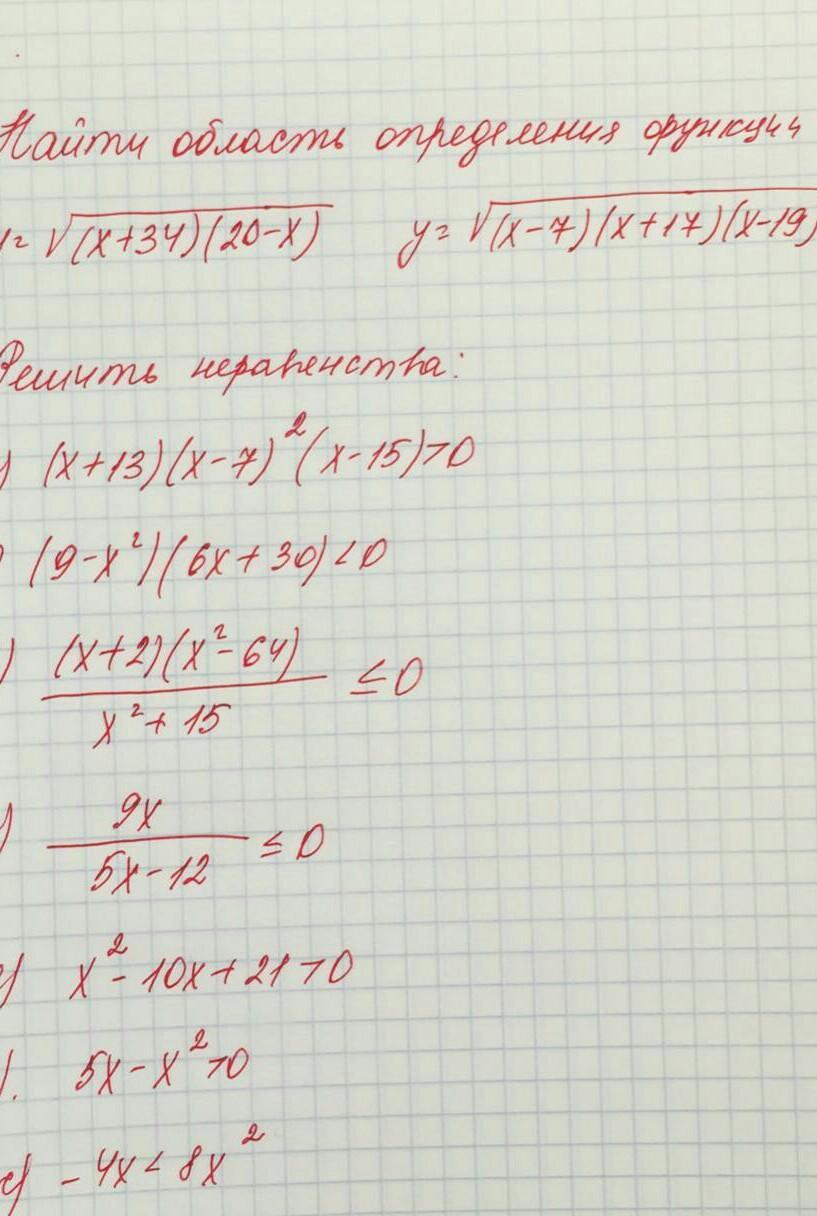 Найти область определения функции
y = √(x+34)(20-x) y = √(x-7)(x+17)(x-19)
Решить неравенства:
) (x+13)(x-7)²(x-15)>0
) (9-x²)(6x+30)<0
) (x+2)(x²-64)/(x²+15) ≤0
) 9x/(5x-12) ≤0
) x²-10x+21>0
). 5x-x²>0
) -4x<8x²